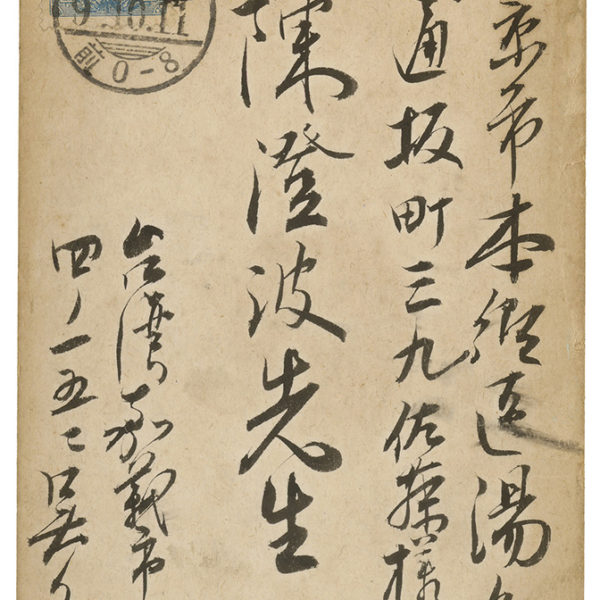 京市本郷區湯
通坂町三九佐藤様
陳澄波先生
台灣嘉義市
四ノ一五二吳
9.10.11
前0-8